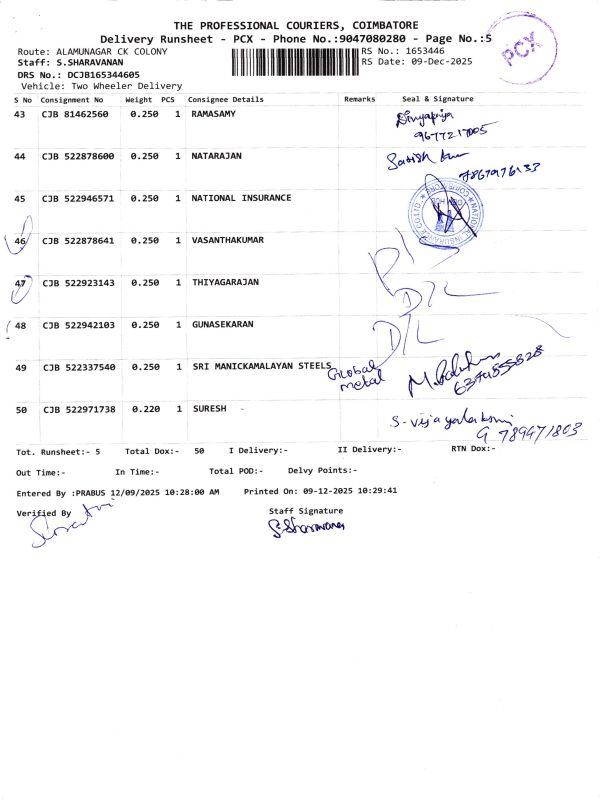 THE PROFESSIONAL COURIERS, COIMBATORE
Delivery Runsheet - PCX - Phone No.:9047080280 - Page No.:5
PCX
Route: ALAMUNAGAR CK COLONY RS No.: 1653446
Staff: S.SHARAVANAN RS Date: 09-Dec-2025
DRS No.: DCJB165344605
Vehicle: Two Wheeler Delivery
S No Consignment No Weight PCS Consignee Details Remarks Seal & Signature
43 CJB 81462560 0.250 1 RAMASAMY Divyapriya
9677217005
44 CJB 522878600 0.250 1 NATARAJAN Satish
7867976133
45 CJB 522946571 0.250 1 NATIONAL INSURANCE
46 CJB 522878641 0.250 1 VASANTHKUMAR
47 CJB 522923143 0.250 1 THIYAGARAJAN D/L
48 CJB 522942103 0.250 1 GUNASEKARAN D/L
49 CJB 522337540 0.250 1 SRI MANICKAMALAYAN STEELS Global
metal
50 CJB 522971738 0.220 1 SURESH - S-vijayalakshmi
789471803
Tot. Runsheet:- 5 Total Dox:- 50 I Delivery:- II Delivery:- RTN Dox:-
Out Time:- In Time:- Total POD:- Delvy Points:-
Entered By :PRABUS 12/09/2025 10:28:00 AM Printed On: 09-12-2025 10:29:41
Verified By Staff Signature
S.Sharavanan